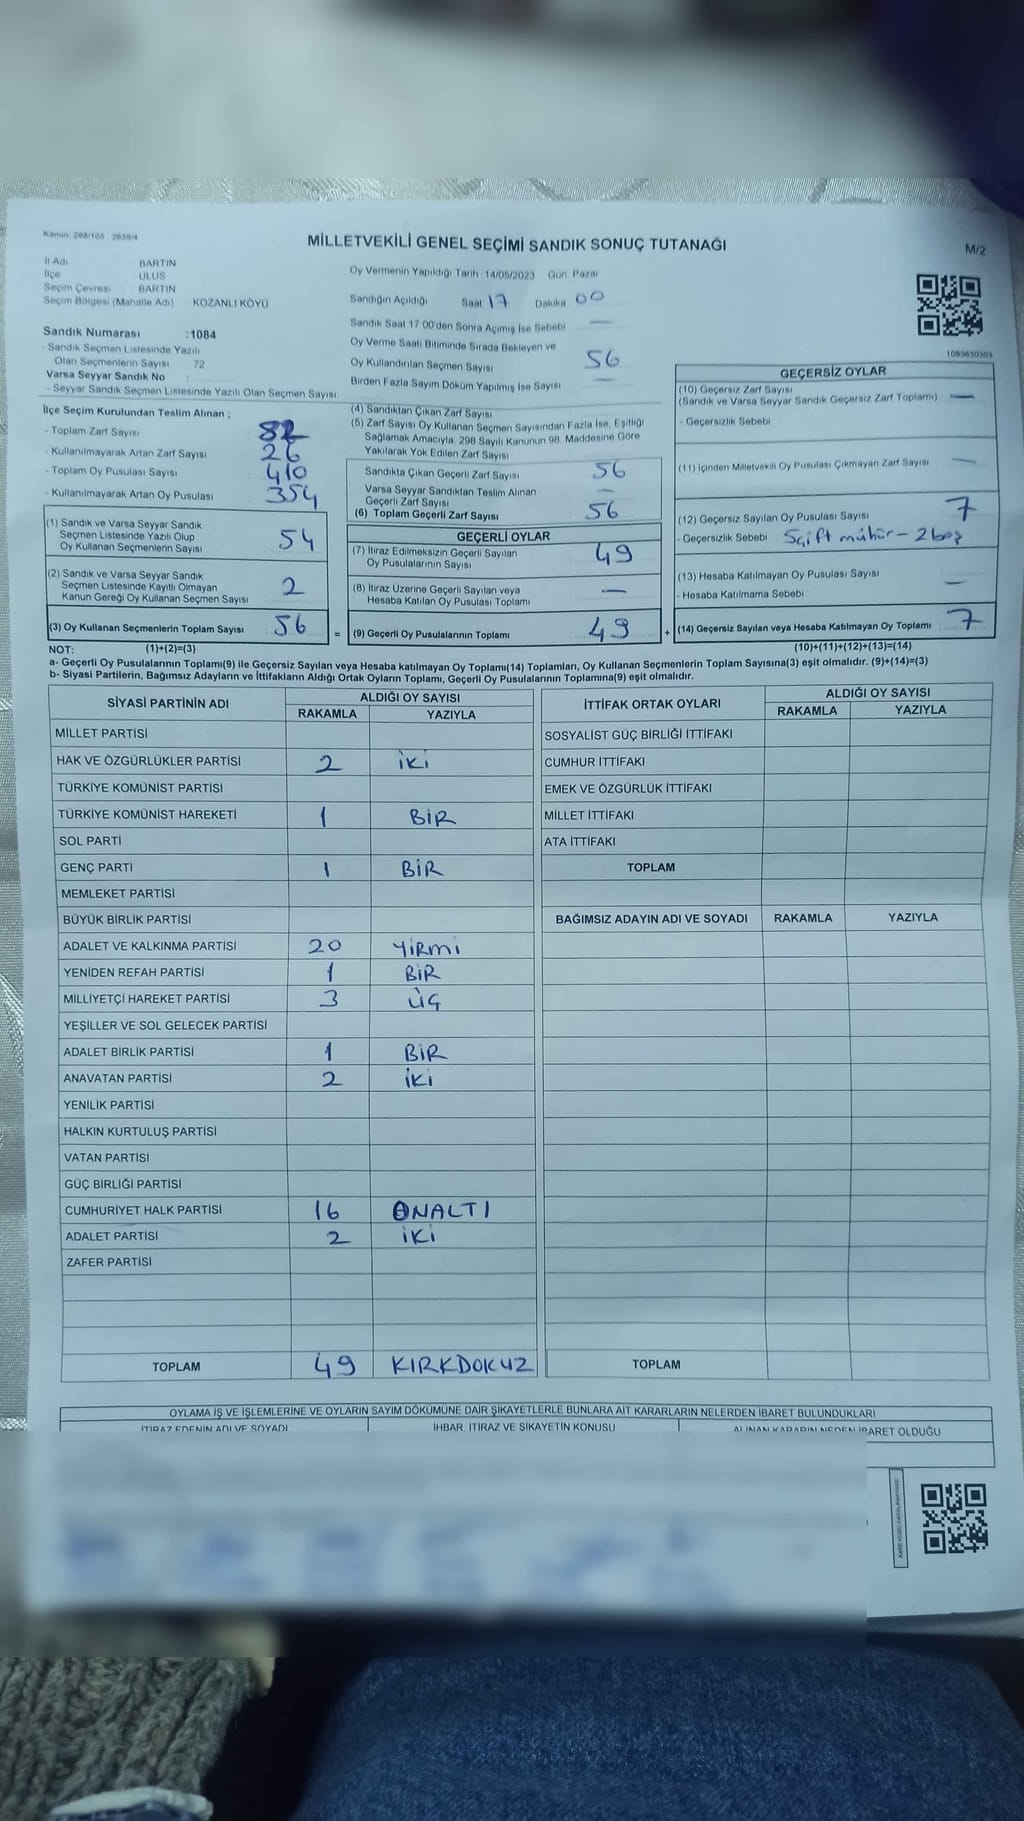 Kanun: 298/105 - 2839/4
MİLLETVEKİLİ GENEL SEÇİMİ SANDIK SONUÇ TUTANAĞI
M/2
İl Adı BARTIN
İlçe ULUS
Seçim Çevresi BARTIN
Seçim Bölgesi (Mahalle Adı) KOZANLI KÖYÜ
Oy Vermenin Yapıldığı Tarih 14/05/2023 Gün Pazar
Sandığın Açıldığı Saat 17 Dakika 00
Sandık Saat 17 00'den Sonra Açımış İse Sebebi —
Oy Verme Saati Bitiminde Sırada Bekleyen ve
Oy Kullandırılan Seçmen Sayısı 56
Birden Fazla Sayım Döküm Yapılmış İse Sayısı —
1083630303
Sandık Numarası : 1084
- Sandık Seçmen Listesinde Yazılı
Olan Seçmenlerin Sayısı 72
Varsa Seyyar Sandık No :
- Seyyar Sandık Seçmen Listesinde Yazılı Olan Seçmen Sayısı
İlçe Seçim Kurulundan Teslim Alınan ;
- Toplam Zarf Sayısı 82
- Kullanılmayarak Artan Zarf Sayısı 26
- Toplam Oy Pusulası Sayısı 410
- Kullanılmayarak Artan Oy Pusulası 354
(1) Sandık ve Varsa Seyyar Sandık
Seçmen Listesinde Yazılı Olup
Oy Kullanan Seçmenlerin Sayısı 54
(2) Sandık ve Varsa Seyyar Sandık
Seçmen Listesinde Kayıtlı Olmayan
Kanun Gereği Oy Kullanan Seçmen Sayısı 2
(3) Oy Kullanan Seçmenlerin Toplam Sayısı 56
(4) Sandıktan Çıkan Zarf Sayısı
(5) Zarf Sayısı Oy Kullanan Seçmen Sayısından Fazla İse, Eşitliği
Sağlamak Amacıyla, 298 Sayılı Kanunun 98. Maddesine Göre
Yakılarak Yok Edilen Zarf Sayısı
Sandıkta Çıkan Geçerli Zarf Sayısı 56
Varsa Seyyar Sandıktan Teslim Alınan
Geçerli Zarf Sayısı —
(6) Toplam Geçerli Zarf Sayısı 56
GEÇERLİ OYLAR
(7) İtiraz Edilmeksizin Geçerli Sayılan
Oy Pusulalarının Sayısı 49
(8) İtiraz Üzerine Geçerli Sayılan veya
Hesaba Katılan Oy Pusulası Toplamı —
= (9) Geçerli Oy Pusulalarının Toplamı 49
GEÇERSİZ OYLAR
(10) Geçersiz Zarf Sayısı
(Sandık ve Varsa Seyyar Sandık Geçersiz Zarf Toplamı) —
- Geçersizlik Sebebi
(11) İçinden Milletvekili Oy Pusulası Çıkmayan Zarf Sayısı —
(12) Geçersiz Sayılan Oy Pusulası Sayısı 7
- Geçersizlik Sebebi 5çift mühür - 2 boş
(13) Hesaba Katılmayan Oy Pusulası Sayısı
- Hesaba Katılmama Sebebi —
+ (14) Geçersiz Sayılan veya Hesaba Katılmayan Oy Toplamı 7
NOT: (1)+(2)=(3)
(10)+(11)+(12)+(13)=(14)
a- Geçerli Oy Pusulalarının Toplamı(9) ile Geçersiz Sayılan veya Hesaba katılmayan Oy Toplamı(14) Toplamları, Oy Kullanan Seçmenlerin Toplam Sayısına(3) eşit olmalıdır. (9)+(14)=(3)
b- Siyasi Partilerin, Bağımsız Adayların ve İttifakların Aldığı Ortak Oyların Toplamı, Geçerli Oy Pusulalarının Toplamına(9) eşit olmalıdır.
SİYASİ PARTİNİN ADI ALDIĞI OY SAYISI
RAKAMLA YAZIYLA
MİLLET PARTİSİ
HAK VE ÖZGÜRLÜKLER PARTİSİ 2 İKİ
TÜRKİYE KOMÜNİST PARTİSİ
TÜRKİYE KOMÜNİST HAREKETİ 1 BİR
SOL PARTİ
GENÇ PARTİ 1 BİR
MEMLEKET PARTİSİ
BÜYÜK BİRLİK PARTİSİ
ADALET VE KALKINMA PARTİSİ 20 YİRMİ
YENİDEN REFAH PARTİSİ 1 BİR
MİLLİYETÇİ HAREKET PARTİSİ 3 ÜÇ
YEŞİLLER VE SOL GELECEK PARTİSİ
ADALET BİRLİK PARTİSİ 1 BİR
ANAVATAN PARTİSİ 2 İKİ
YENİLİK PARTİSİ
HALKIN KURTULUŞ PARTİSİ
VATAN PARTİSİ
GÜÇ BİRLİĞİ PARTİSİ
CUMHURİYET HALK PARTİSİ 16 ONALTI
ADALET PARTİSİ 2 İKİ
ZAFER PARTİSİ
TOPLAM 49 KIRKDOKUZ
İTTİFAK ORTAK OYLARI ALDIĞI OY SAYISI
RAKAMLA YAZIYLA
SOSYALİST GÜÇ BİRLİĞİ İTTİFAKI
CUMHUR İTTİFAKI
EMEK VE ÖZGÜRLÜK İTTİFAKI
MİLLET İTTİFAKI
ATA İTTİFAKI
TOPLAM
BAĞIMSIZ ADAYIN ADI VE SOYADI RAKAMLA YAZIYLA
TOPLAM
OYLAMA İŞ VE İŞLEMLERİNE VE OYLARIN SAYIM DÖKÜMÜNE DAİR ŞİKAYETLERLE BUNLARA AİT KARARLARIN NELERDEN İBARET BULUNDUKLARI
İTİRAZ EDENİN ADI VE SOYADI İHBAR, İTİRAZ VE ŞİKAYETİN KONUSU ALINAN KARARIN NEDEN İBARET OLDUĞU